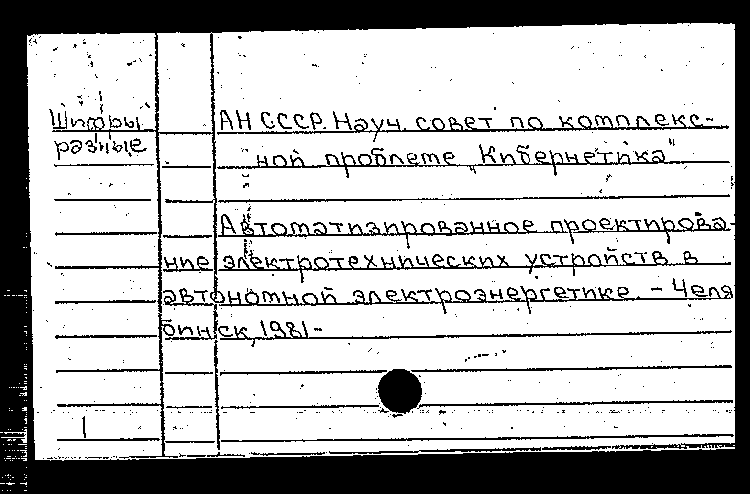 Шифры
разные
АН СССР. Науч. совет по комплекс-
ной проблеме „Кибернетика"
Автоматизированное проектирова-
ние электротехнических устройств в
автономной электроэнергетике. - Челя
бинск, 1981-
1